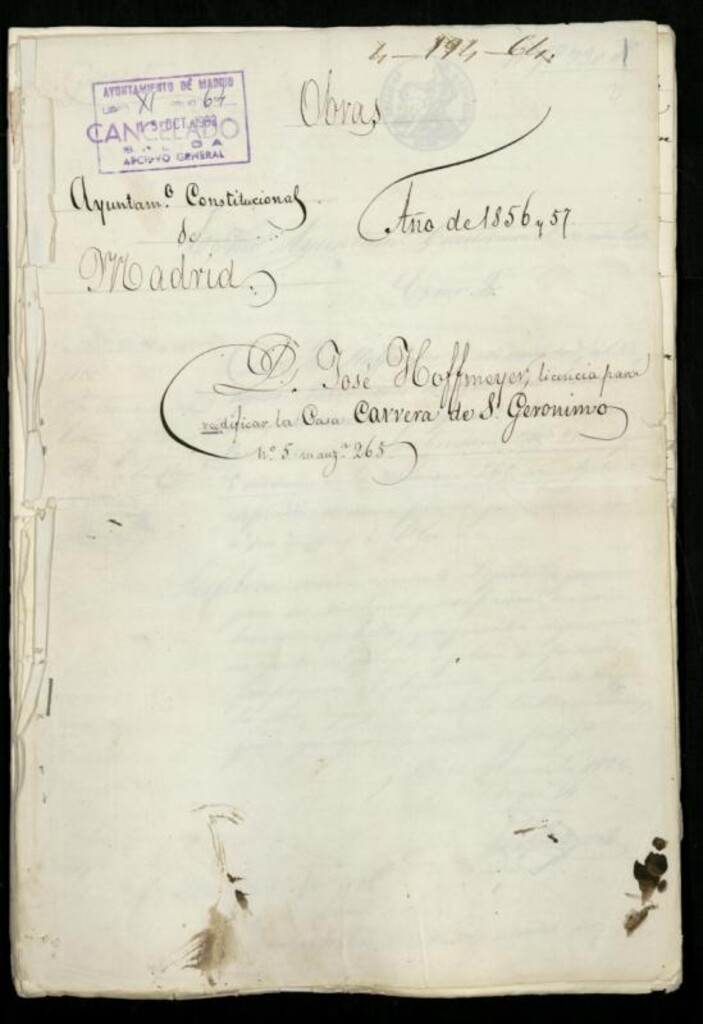 4-194-64.
Obras
AYUNTAMIENTO DE MADRID
XI 64
CANCELADO
OCT.
SALIDA
ARCHIVO GENERAL
Ayuntam.º Constitucional
de
Madrid.
Año de 1856 y 57.
D. José Hoffmeyer, licencia para
reedificar la Casa Carrera de S. Geronimo
nº 5 manz.ª 265